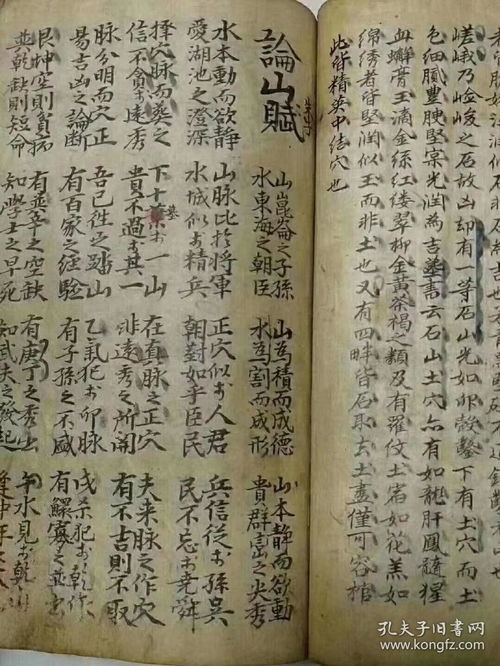 嵯峨乃險峻之石故凶却有一等石山光如卵殼鑿下有土穴而土
色細膩豊腴堅宲光润為吉葬書云石山土穴亦有如龍肝鳳髓猩
血蠏膏玉滴金絲紅缕翠柳金黄茶褐之類及有羅仗土窩如花羔如
綿绣者皆堅润似玉而非土也又有四畔皆石取去土盡僅可容棺
此皆精英中结穴也
論山賦
山崑崙之子孫 山為積而成德 山本静而欲動
水東海之朝臣 水為割而成形 貴群巒之尖秀
水本動而欲静 山脈比於將軍 正穴似於人君 兵信從於孫吳
愛湖池之澄深 水城似於精兵 朝對如乎臣民 民不忘於堯舜
擇穴脈而葬之 下十墓於一山 在真脈之正穴 夫来脈之作穴
信不貪於遠秀 貴不過於其一 非遠秀之所関 有不吉則不取
脈分明而穴正 吾已往之踏山 乙氣犯於卯脈 戊杀犯於乾作
易吉凶之論断 有百家之経驗 有子孫之不盛 有鰥寡之並出
艮坤空則貧病 有巽辛之空缺 有庚丁之秀出 午水見於乾
並乾缺則短命 知學士之早死 知武夫之俊起
孔夫子旧书网
www.kongfz.com